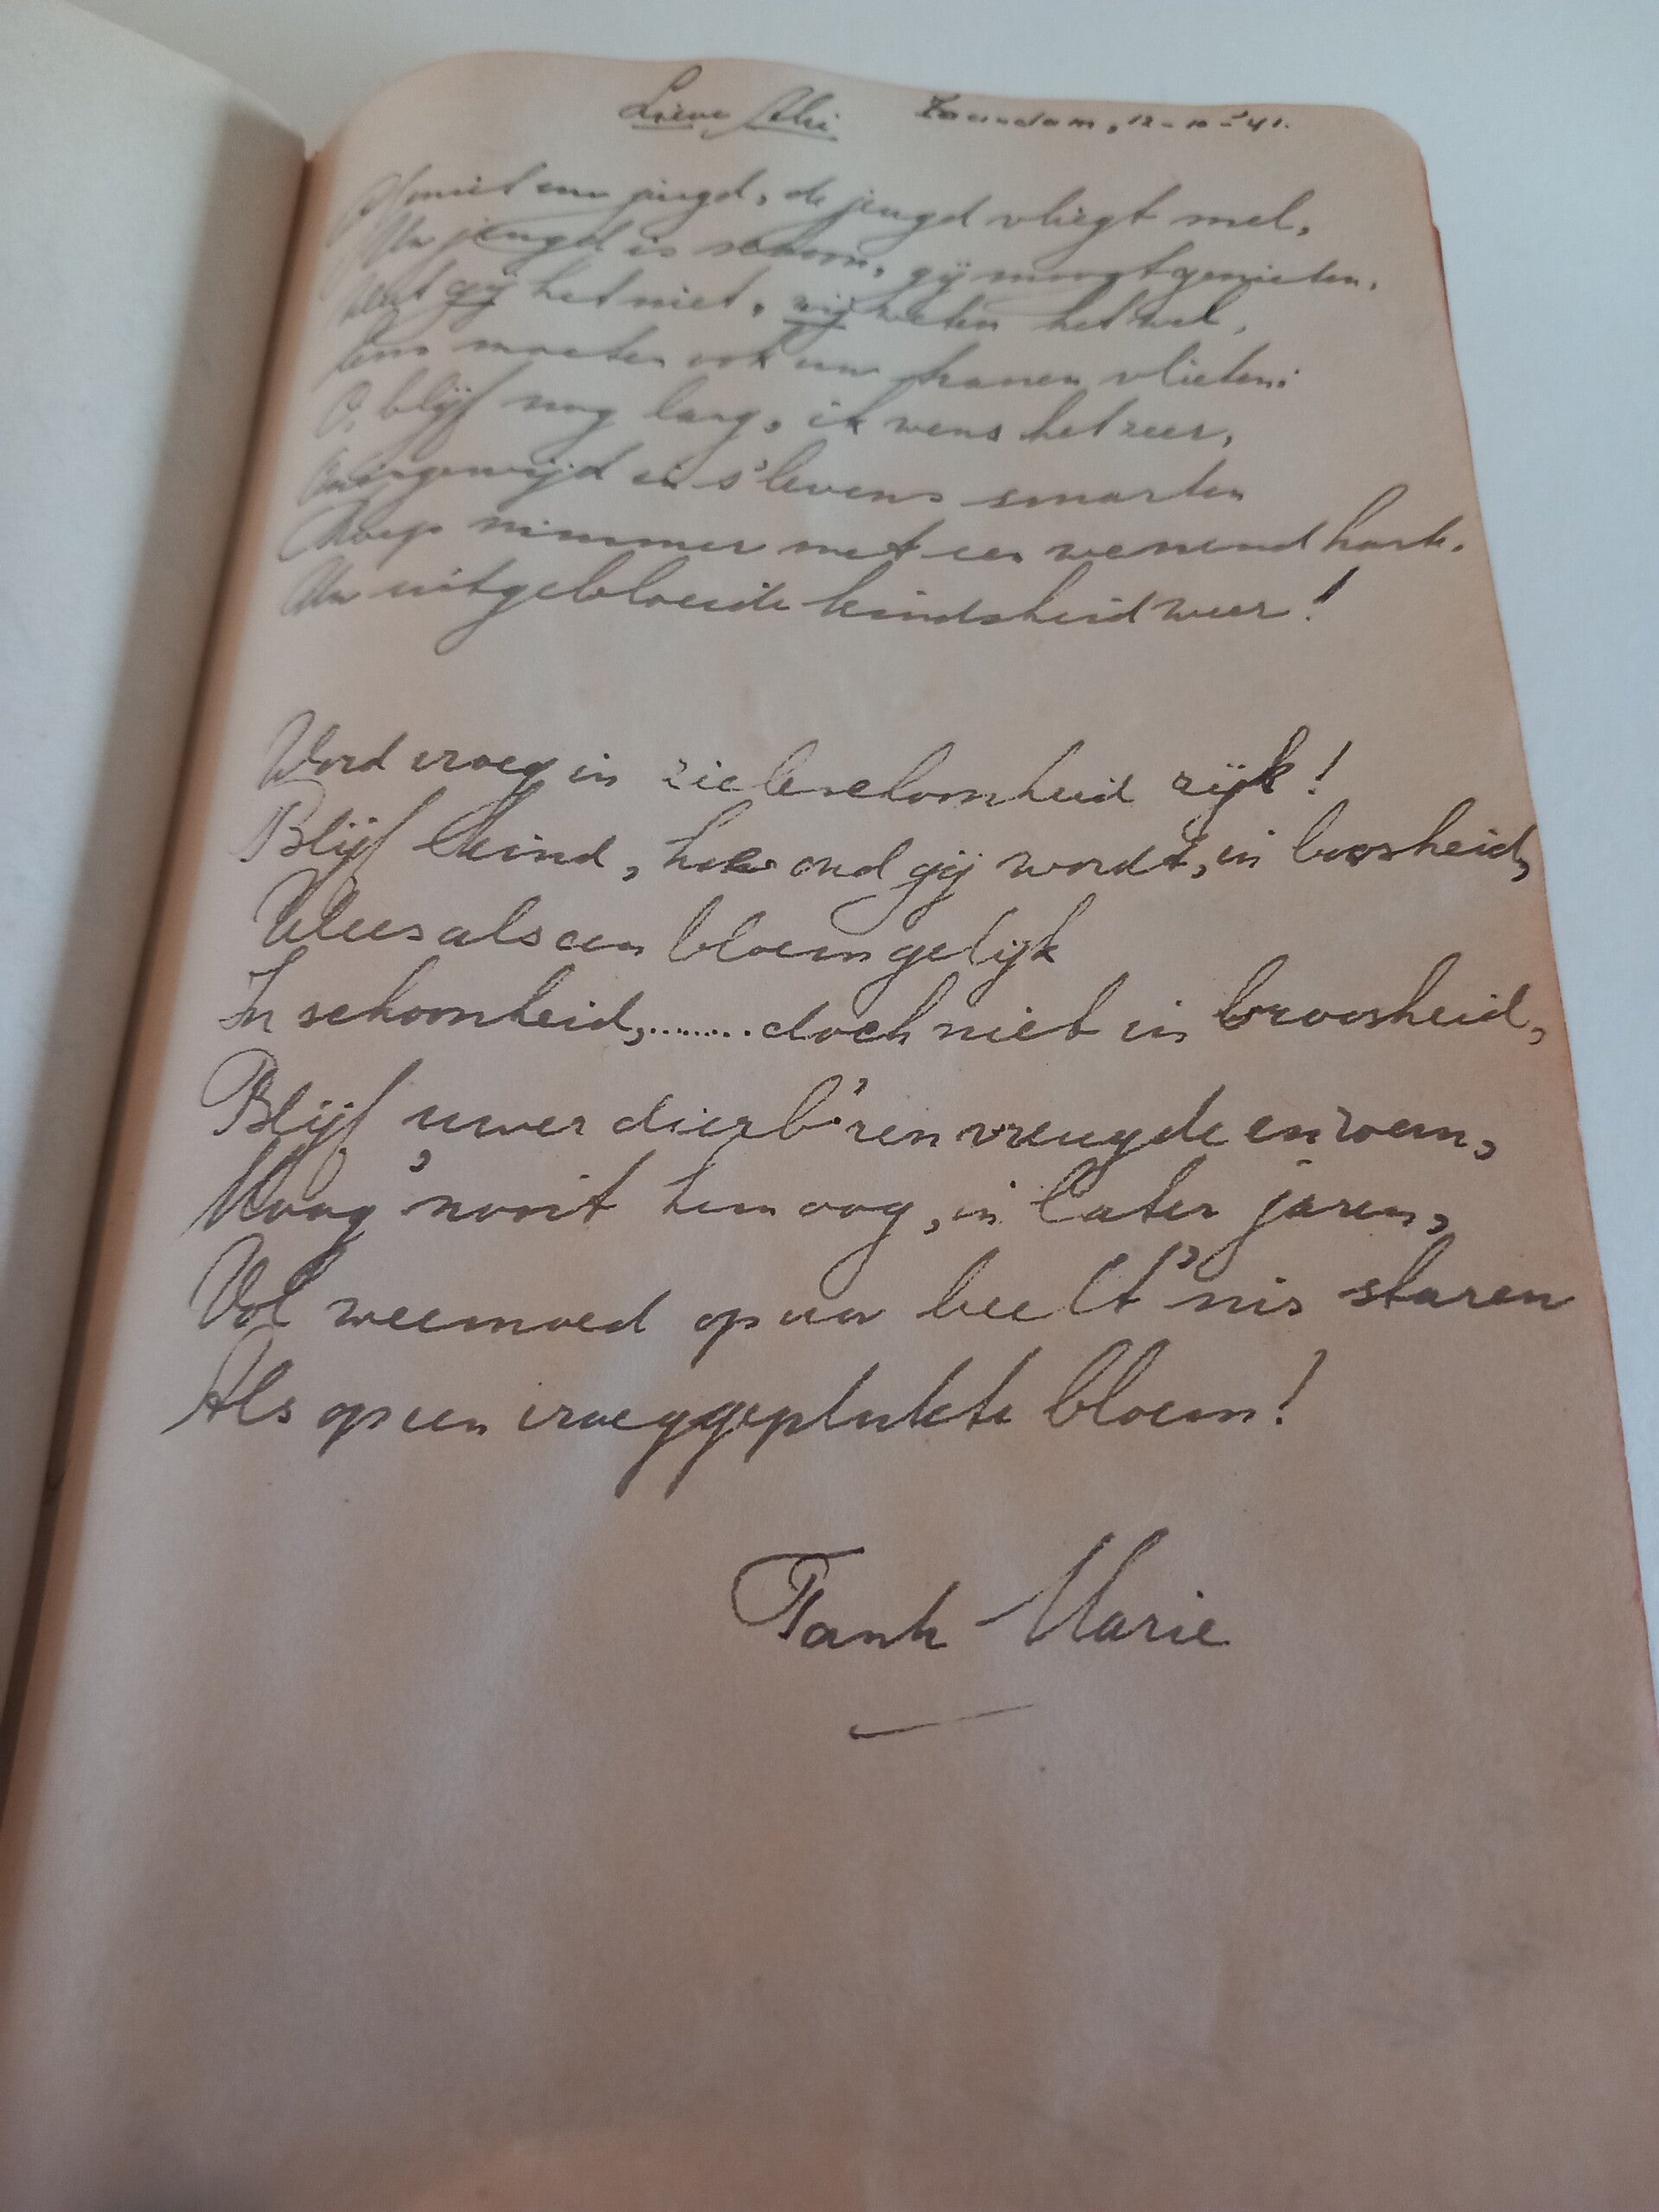 Lieve Ali Zaandam, 12-10-'41.
Geniet uw jeugd, de jeugd vliegt snel,
Uw jeugd is schoon, gij moogt genieten,
Weet gij het niet, wij weten het wel,
Eens moeten ook uw tranen vlieten:
O, blijf nog lang, ik wens het zeer,
Oningewijd in s'levens smarten
Roep nimmer met een wenend hart.
Uw uitgebloeide kindsheid weer!
Word vroeg in zieleschoonheid rijk!
Blijf kind, hoe oud gij wordt, in boosheid,
Wees als een bloem gelijk
In schoonheid,........doch niet in broosheid,
Blijf uwer dierb'ren vreugde en roem,
Moog' nooit hun oog, in later jaren,
Vol weemoed op uw beelt'nis staren
Als op een vroeggeplukte bloem!
Tante Marie